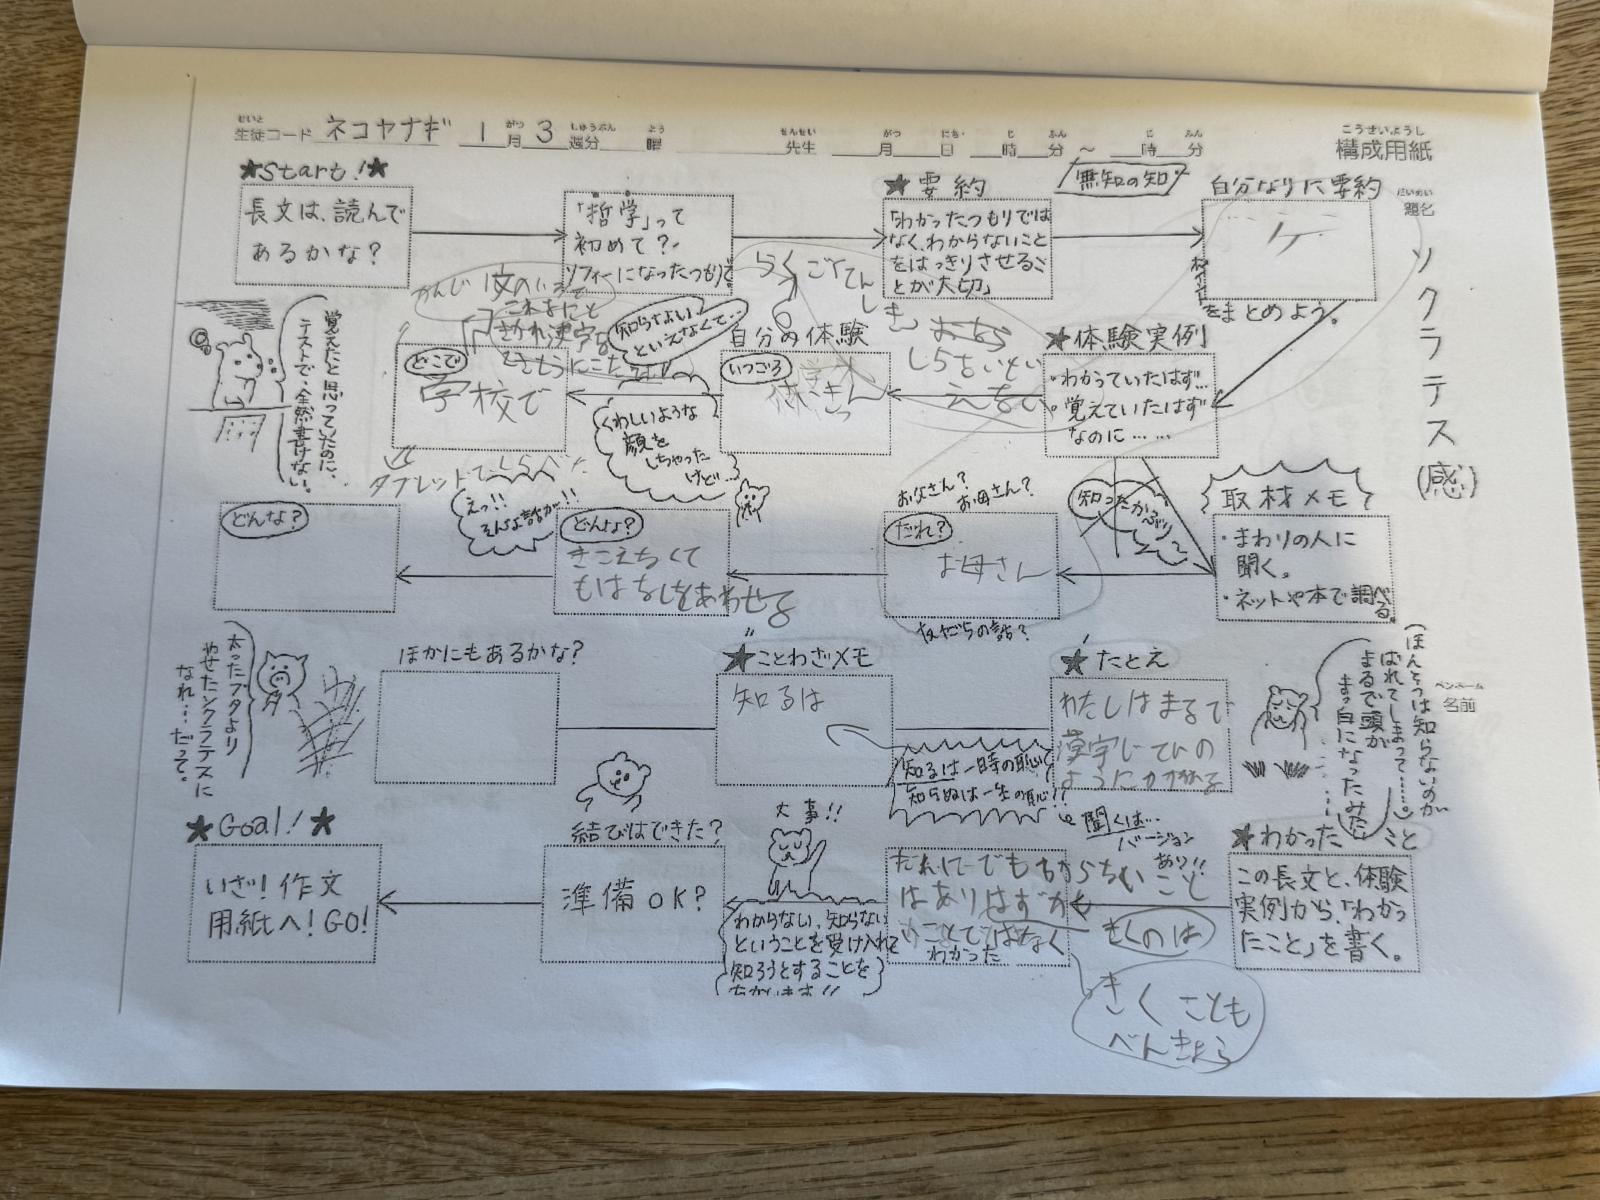 せいと がつ しゅうぶん よう せんせい がつ にち じ ふん じ ふん こうせいようし
生徒コード ネコヤナギ 1月3週分 曜 先生 月 日 時 分 ~ 時 分 構成用紙
だいめい
題名
ソクラテス(感)
★Start!★
長文は、読んで
あるかな?
「哲学」って
初めて?
ソフィーになったつもりで
★要約
無知の知
「わかったつもりでは
なく、わからないこと
をはっきりさせるこ
とが大切」
自分なりに要約
ケ
ポイント
をまとめよう。
★体験実例
・わかっていたはず…
・覚えていたはず
なのに……
自分の体験
いつごろ
らくごてん
しき
しらないとい
えなくて
知らないよ
といえなくて…
どこで
学校で
かんじ
タブレットでしらべた
くわしいような
顔を
しちゃった
けど…
覚えたと思っていたのに、
テストで、全然書けない。
取材メモ
・まわりの人に
聞く。
・ネットや本で調べる。
知ったかぶり
お父さん?
お母さん?
だれ?
お母さん
友だちの話?
どんな?
きこえなくて
もはなしをあわせる
えっ!!
そんな話が!!
どんな?
ペンネーム
名前
(ほんとうは知らないのが
ばれてしまって……
まるで頭が
まっ白になったみたい
★たとえ
わたしはまるで
漢字じてんの
ように
★ことわざメモ
知るは
知るは一時の恥
知らぬは一生の恥!!
聞くは…
バージョン
あり!!
ほかにもあるかな?
太ったブタより
やせたソクラテスに
なれ…だって。
★わかったこと
この長文と、体験
実例から、「わかっ
たこと」を書く。
だれにーでもわからないこと
はありはずか
いことではなく
わかった
きくのは
きくことも
べんきょう
大事!!
わからない、知らない
ということを受け入れて
知ろうとすることを
結びはできた?
準備OK?
★Goal!★
いざ!作文
用紙へ!GO!